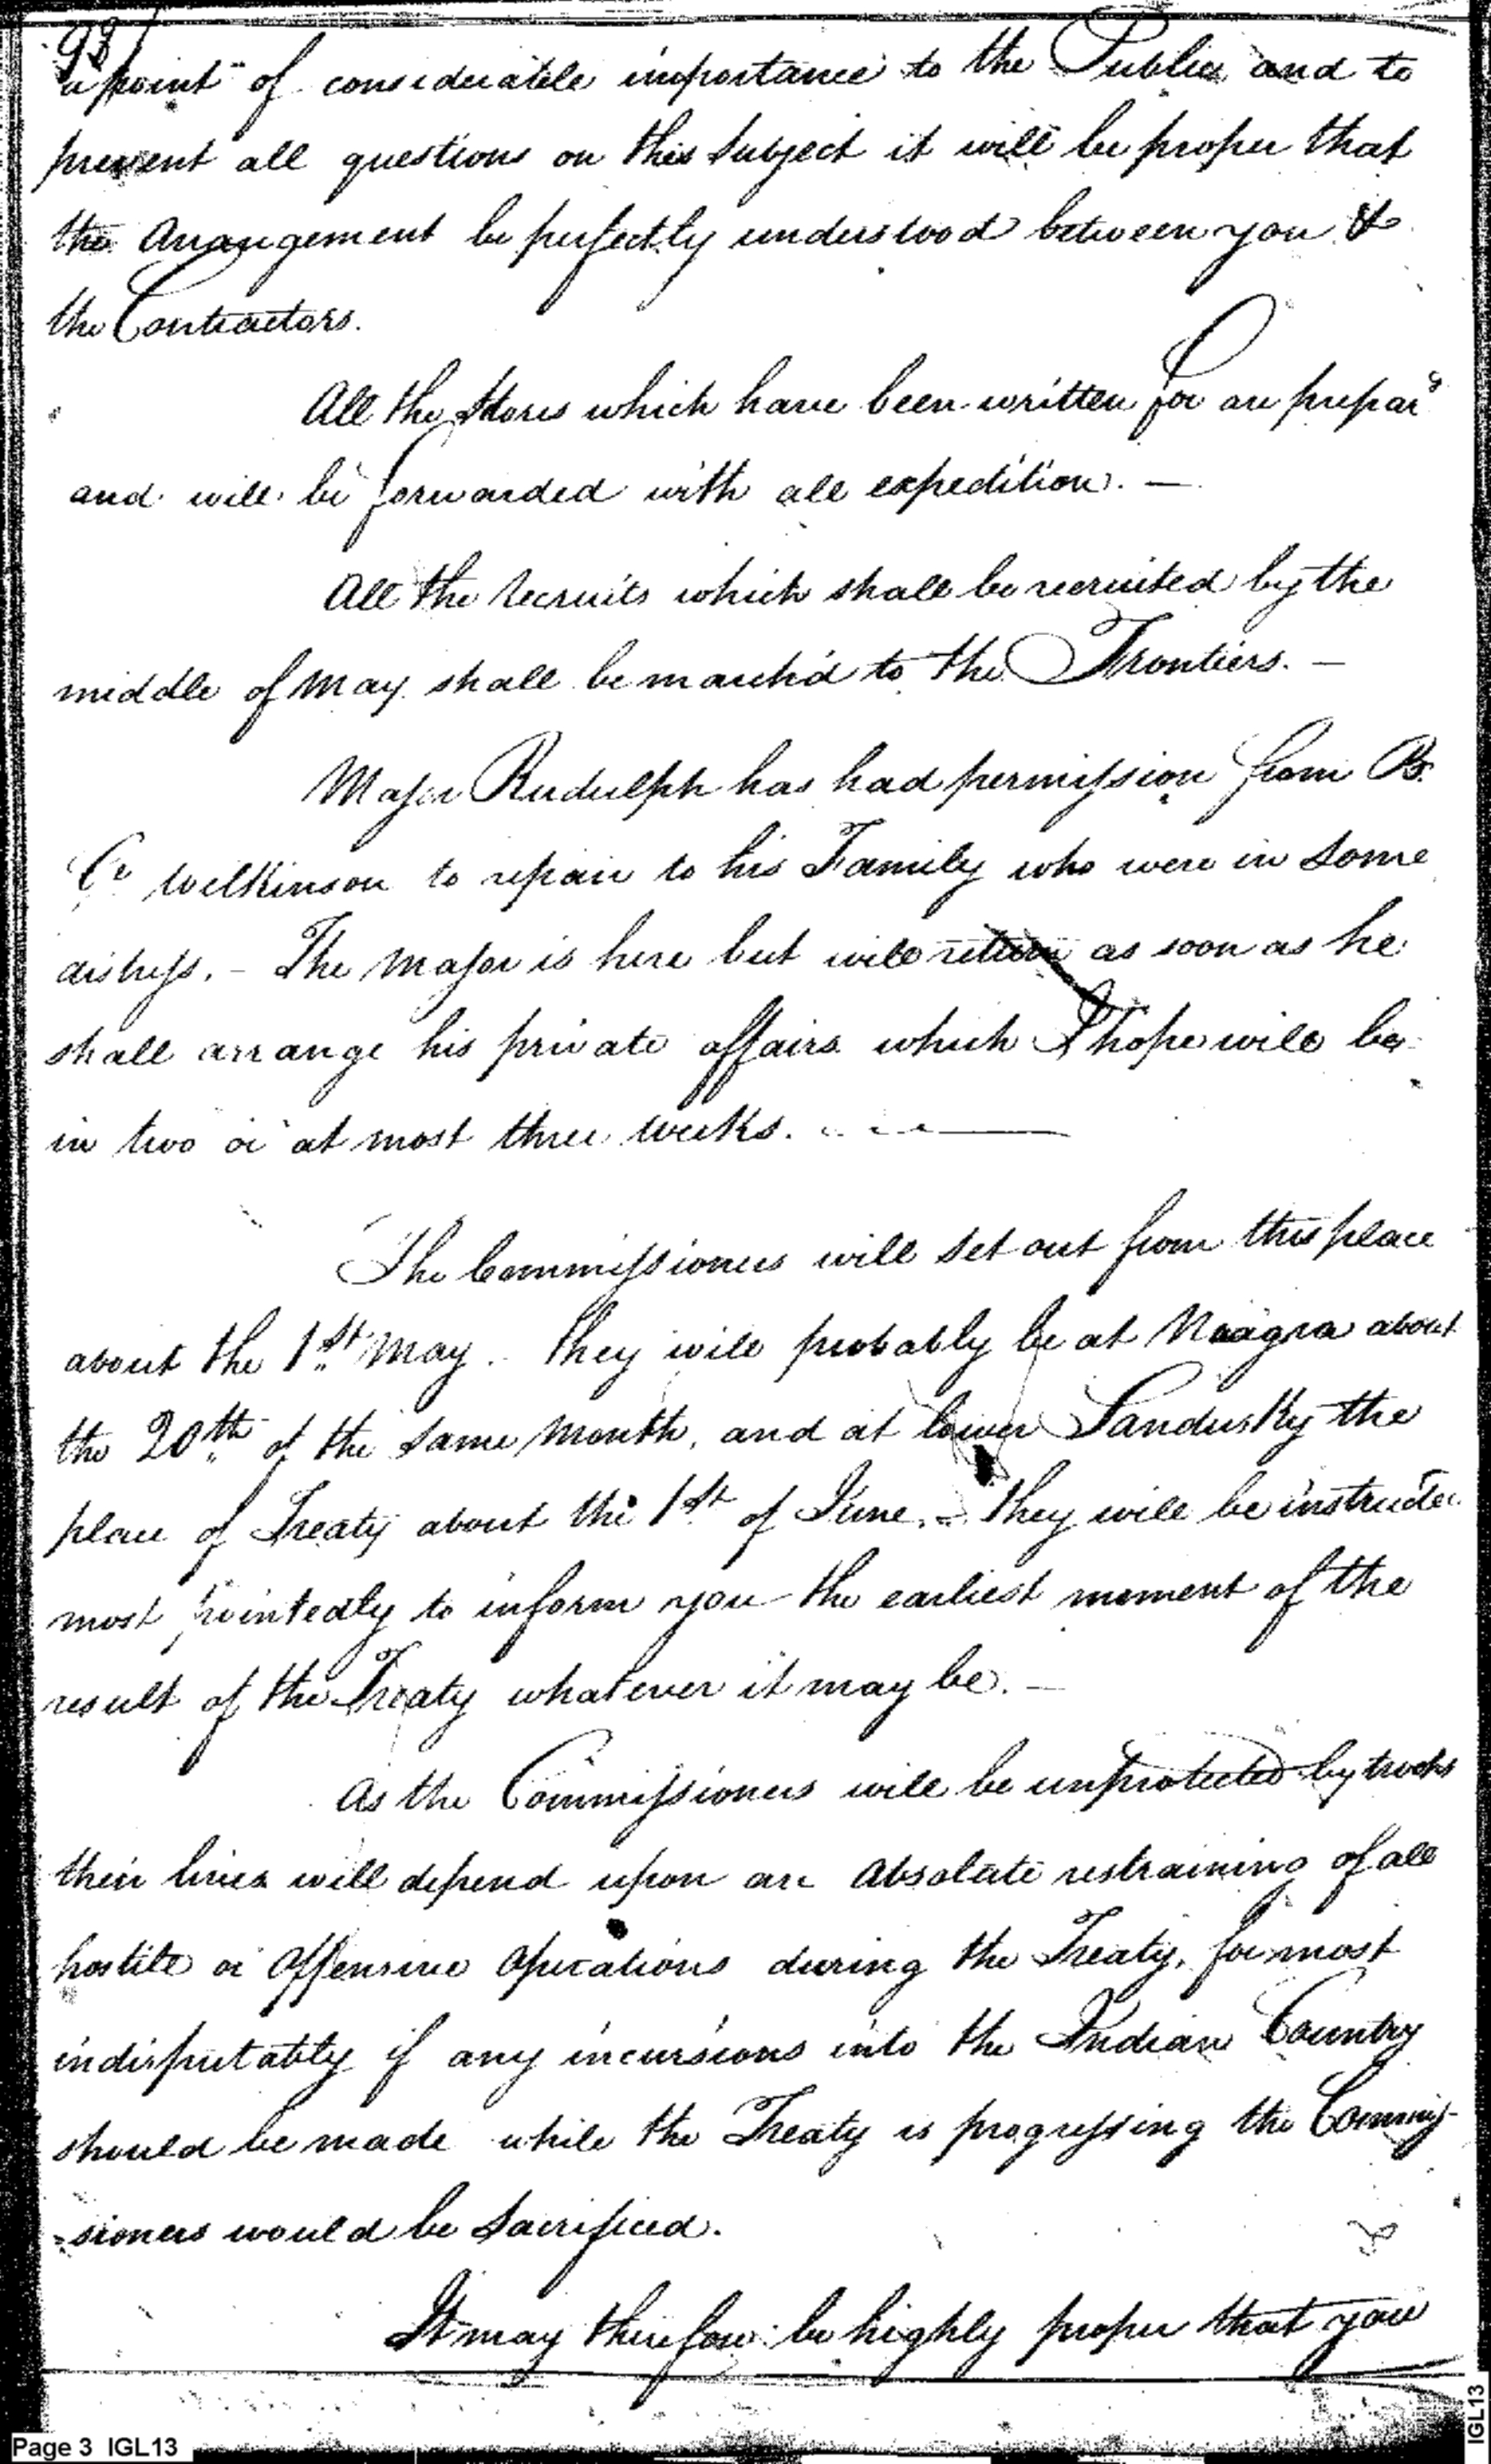 93
a point of considerable importance to the Public and to
prevent all questions on this subject it will be proper that
the Arrangement be perfectly understood between you &
the Contractors.
All the Stores which have been written for are prepard
and will be forwarded with all expedition. —
All the recruits which shall be recruited by the
middle of May shall be march'd to the Frontiers. —
Major Rudulph has had permission from Br.
Gl Wilkinson to repair to his Family who were in some
distress. - The Major is here but will return as soon as he
shall arrange his private affairs which I hope will be
in two or at most three weeks. —
The Commissioners will set out from this place
about the 1st May. They will probably be at Niagra about
the 20th of the same Month, and at lower Sandusky the
place of Treaty about the 1st of June. - They will be instructed
most pointedly to inform you the earliest moment of the
result of the Treaty whatever it may be. —
As the Commissioners will be unprotected by troops
their lives will depend upon an Absolute restraining of all
hostile or Offensive Operations during the Treaty, for most
indisputably if any incursions into the Indian Country
should be made while the Treaty is progressing the Commis-
=sioners would be Sacrificed.
It may therefore be highly proper that you
Page 3 IGL13
IGL13